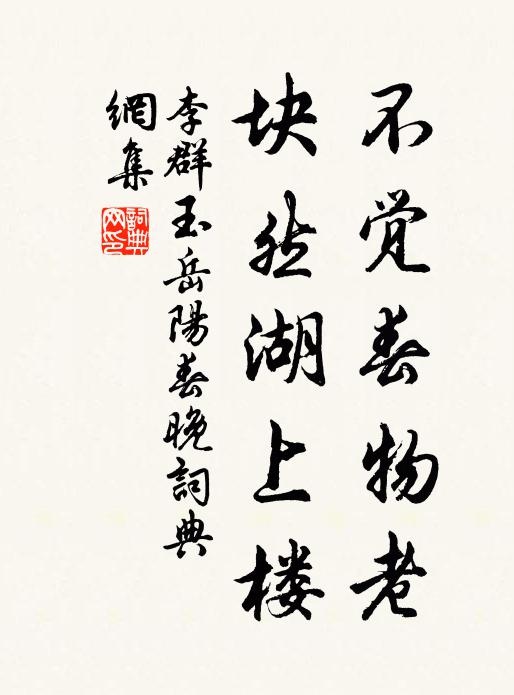 不觉春物老
块然湖上楼
李群玉岳陽春晚詞典
網集
詞典
网印